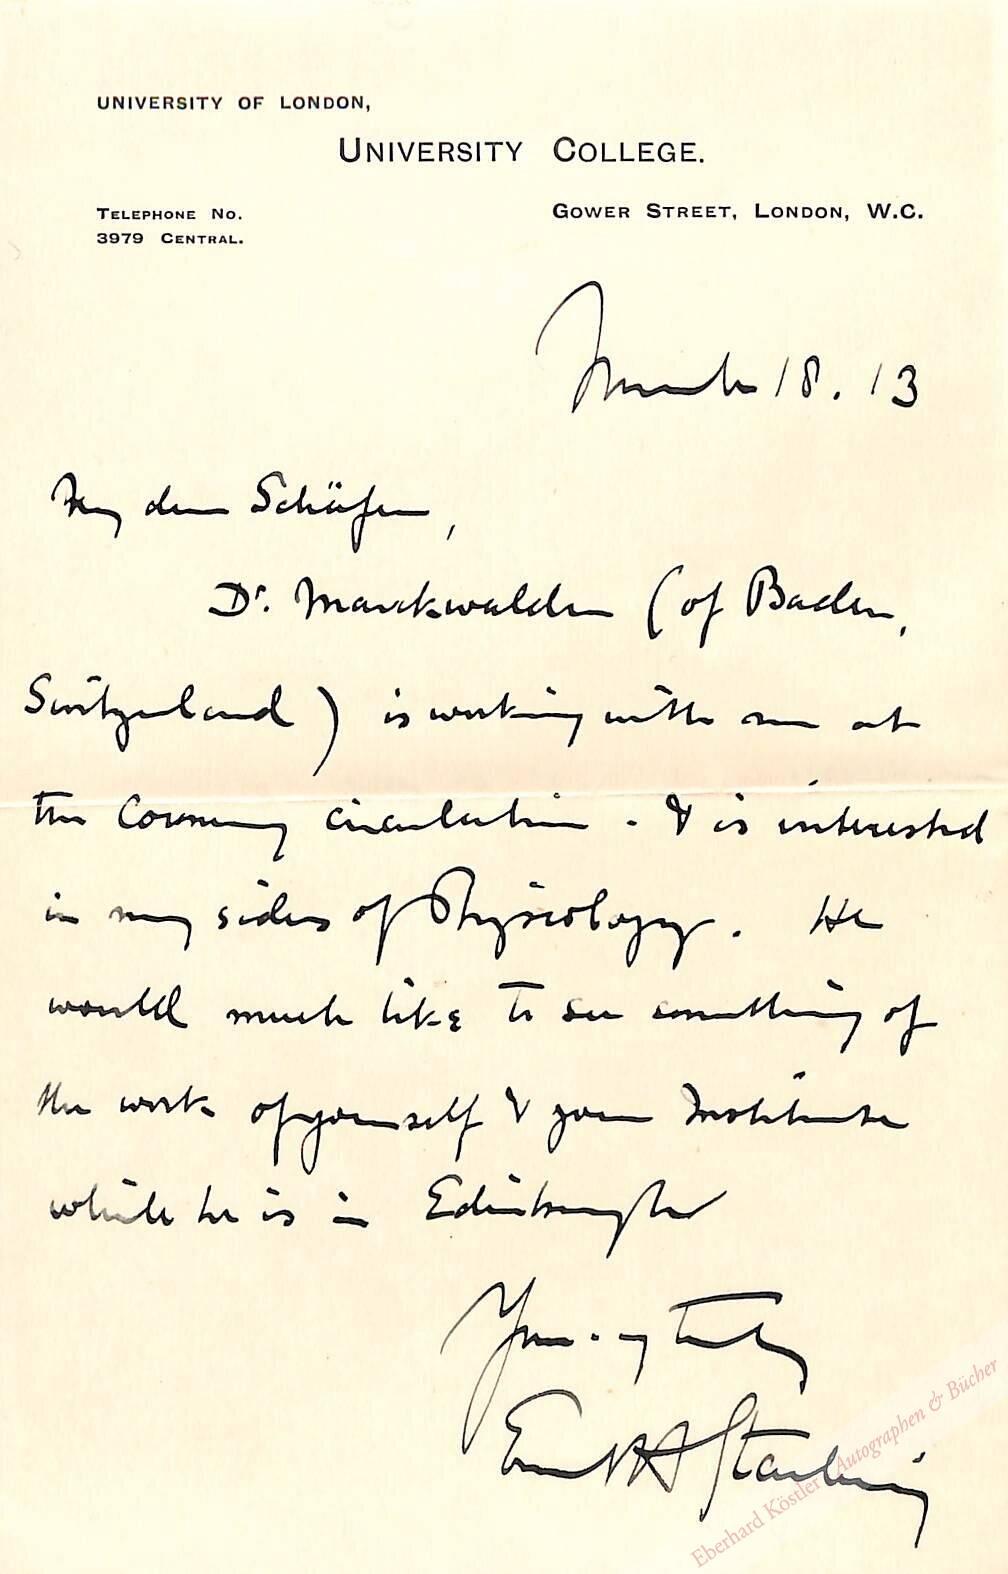 UNIVERSITY OF LONDON,
UNIVERSITY COLLEGE.
TELEPHONE NO.
3979 CENTRAL.
GOWER STREET, LONDON, W.C.
March 18. 13
My dear Schäfer,
Dr. Marckwalder (of Baden,
Switzerland) is working with me at
the Coronary circulation - & is interested
in many sides of Physiology. He
would much like to see something of
the work of yourself & your Institute
while he is in Edinburgh
Yours truly
Ernest H Starling
Eberhard Köstler Autographen & Bücher